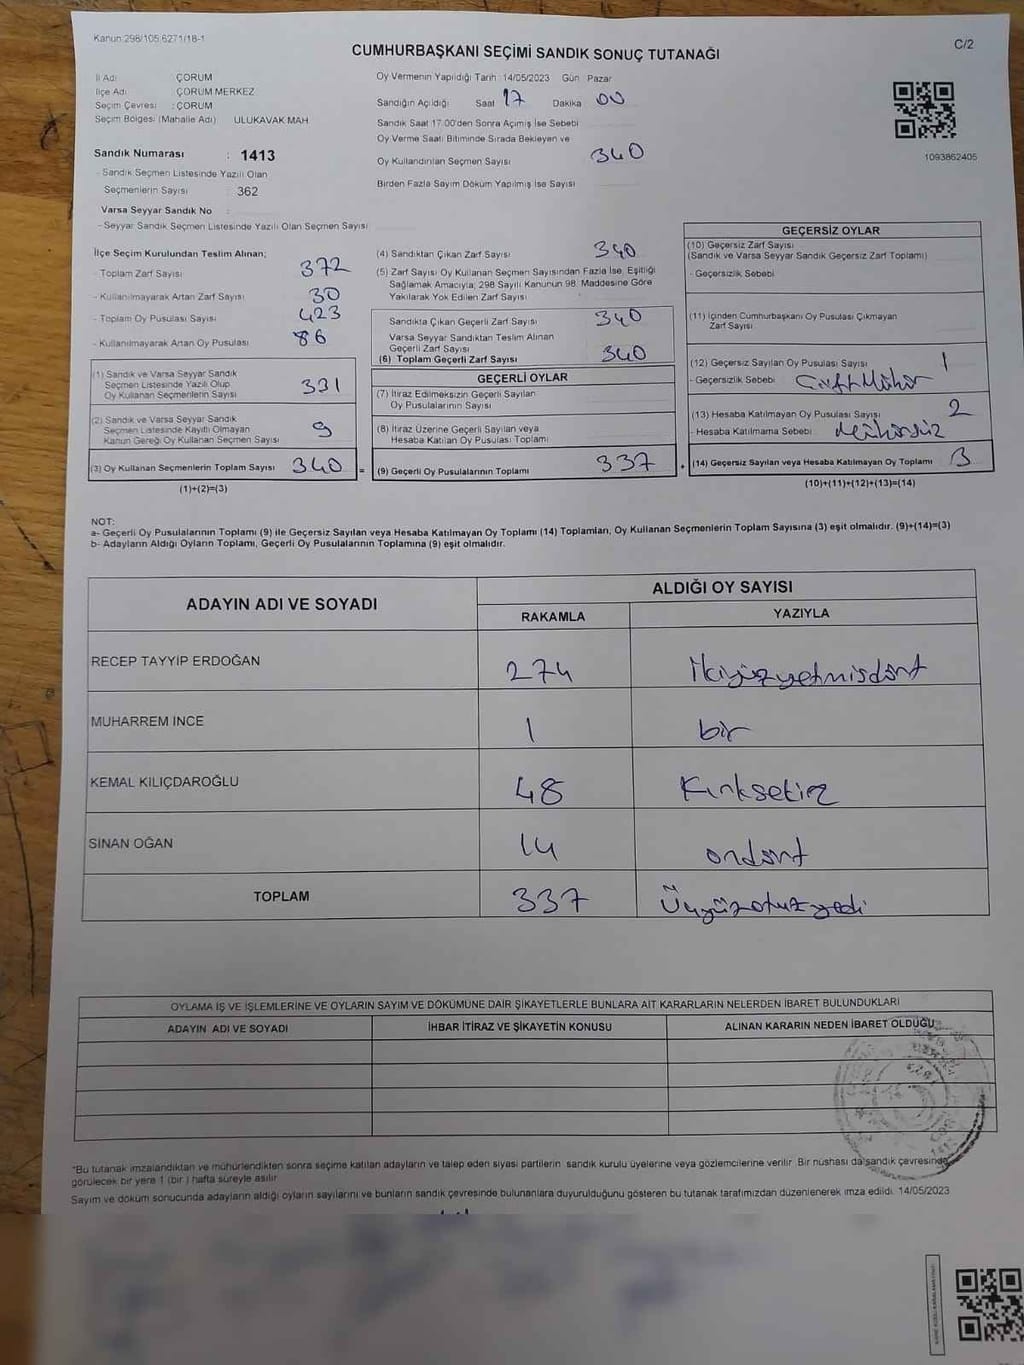 Kanun:298/105,6271/18-1
C/2
CUMHURBAŞKANI SEÇİMİ SANDIK SONUÇ TUTANAĞI
İl Adı ÇORUM
İlçe Adı ÇORUM MERKEZ
Seçim Çevresi : ÇORUM
Seçim Bölgesi (Mahalle Adı) ULUKAVAK MAH
Sandık Numarası : 1413
- Sandık Seçmen Listesinde Yazılı Olan
Seçmenlerin Sayısı : 362
Varsa Seyyar Sandık No :
- Seyyar Sandık Seçmen Listesinde Yazılı Olan Seçmen Sayısı
Oy Vermenin Yapıldığı Tarih : 14/05/2023 Gün Pazar
Sandığın Açıldığı Saat 17 Dakika 00
Sandık Saat 17:00'den Sonra Açımış İse Sebebi
Oy Verme Saati Bitiminde Sırada Bekleyen ve
Oy Kullandırılan Seçmen Sayısı 340
Birden Fazla Sayım Döküm Yapılmış İse Sayısı
1093862405
İlçe Seçim Kurulundan Teslim Alınan;
- Toplam Zarf Sayısı 372
- Kullanılmayarak Artan Zarf Sayısı 30
- Toplam Oy Pusulası Sayısı 423
- Kullanılmayarak Artan Oy Pusulası 86
(1) Sandık ve Varsa Seyyar Sandık
Seçmen Listesinde Yazılı Olup
Oy Kullanan Seçmenlerin Sayısı 331
(2) Sandık ve Varsa Seyyar Sandık
Seçmen Listesinde Kayıtlı Olmayan
Kanun Gereği Oy Kullanan Seçmen Sayısı 9
(3) Oy Kullanan Seçmenlerin Toplam Sayısı 340 =
(1)+(2)=(3)
(4) Sandıktan Çıkan Zarf Sayısı 340
(5) Zarf Sayısı Oy Kullanan Seçmen Sayısından Fazla İse, Eşitliği
Sağlamak Amacıyla; 298 Sayılı Kanunun 98. Maddesine Göre
Yakılarak Yok Edilen Zarf Sayısı
Sandıkta Çıkan Geçerli Zarf Sayısı 340
Varsa Seyyar Sandıktan Teslim Alınan
Geçerli Zarf Sayısı
(6) Toplam Geçerli Zarf Sayısı 340
GEÇERLİ OYLAR
(7) İtiraz Edilmeksizin Geçerli Sayılan
Oy Pusulalarının Sayısı
(8) İtiraz Üzerine Geçerli Sayılan veya
Hesaba Katılan Oy Pusulası Toplamı
(9) Geçerli Oy Pusulalarının Toplamı 337 +
GEÇERSİZ OYLAR
(10) Geçersiz Zarf Sayısı
(Sandık ve Varsa Seyyar Sandık Geçersiz Zarf Toplamı)
- Geçersizlik Sebebi
(11) İçinden Cumhurbaşkanı Oy Pusulası Çıkmayan
Zarf Sayısı
(12) Geçersiz Sayılan Oy Pusulası Sayısı 1
- Geçersizlik Sebebi Çift Mühür
(13) Hesaba Katılmayan Oy Pusulası Sayısı 2
- Hesaba Katılmama Sebebi mühürsüz
(14) Geçersiz Sayılan veya Hesaba Katılmayan Oy Toplamı 3
(10)+(11)+(12)+(13)=(14)
NOT:
a- Geçerli Oy Pusulalarının Toplamı (9) ile Geçersiz Sayılan veya Hesaba Katılmayan Oy Toplamı (14) Toplamları, Oy Kullanan Seçmenlerin Toplam Sayısına (3) eşit olmalıdır. (9)+(14)=(3)
b- Adayların Aldığı Oyların Toplamı, Geçerli Oy Pusulalarının Toplamına (9) eşit olmalıdır.
ADAYIN ADI VE SOYADI ALDIĞI OY SAYISI
RAKAMLA YAZIYLA
RECEP TAYYİP ERDOĞAN 274 İkiyüzyetmişdört
MUHARREM İNCE 1 bir
KEMAL KILIÇDAROĞLU 48 Kırksekiz
SİNAN OĞAN 14 ondört
TOPLAM 337 Üçyüzotuzyedi
OYLAMA İŞ VE İŞLEMLERİNE VE OYLARIN SAYIM VE DÖKÜMÜNE DAİR ŞİKAYETLERLE BUNLARA AİT KARARLARIN NELERDEN İBARET BULUNDUKLARI
ADAYIN ADI VE SOYADI İHBAR İTİRAZ VE ŞİKAYETİN KONUSU ALINAN KARARIN NEDEN İBARET OLDUĞU
*Bu tutanak imzalandıktan ve mühürlendikten sonra seçime katılan adayların ve talep eden siyasi partilerin sandık kurulu üyelerine veya gözlemcilerine verilir. Bir nüshası da sandık çevresinde
görülecek bir yere 1 (bir) hafta süreyle asılır
Sayım ve döküm sonucunda adayların aldığı oyların sayılarını ve bunların sandık çevresinde bulunanlara duyurulduğunu gösteren bu tutanak tarafımızdan düzenlenerek imza edildi. 14/05/2023